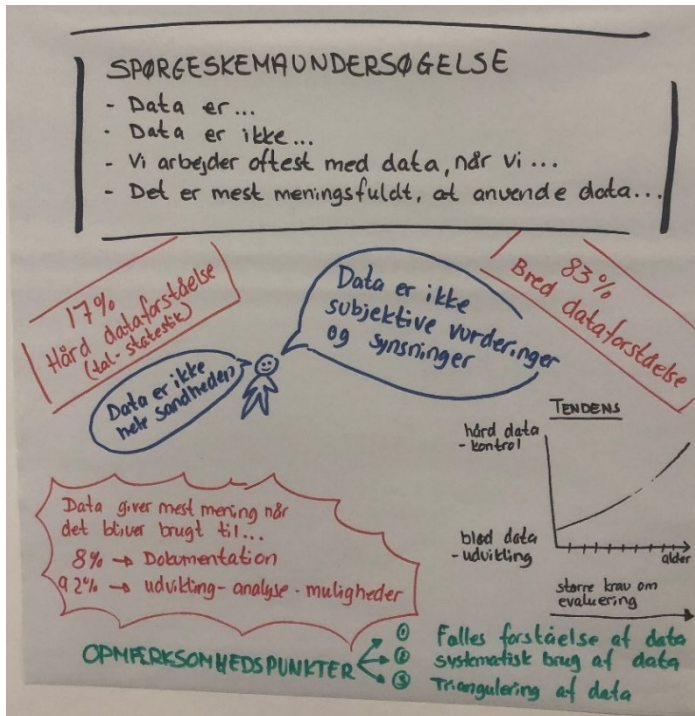 SPØRGESKEMAUNDERSØGELSE
- Data er...
- Data er ikke...
- Vi arbejder oftest med data, når vi...
- Det er mest meningsfuldt, at anvende data...
17%
Hård dataforståelse
(tal-statestik)
83%
Bred dataforståelse
Data er ikke
subjektive vurderinger
og synsninger
Data er ikke
hele sandheden
TENDENS
hård data
- kontrol
blød data
- udvikling
alder
større krav om
evaluering
Data giver mest mening når
det bliver brugt til...
8% → Dokumentation
92% → udvikling - analyse - muligheder
OPMÆRKSOMHEDSPUNKTER
① Fælles forståelse af data
② systematisk brug af data
③ Triangulering af data